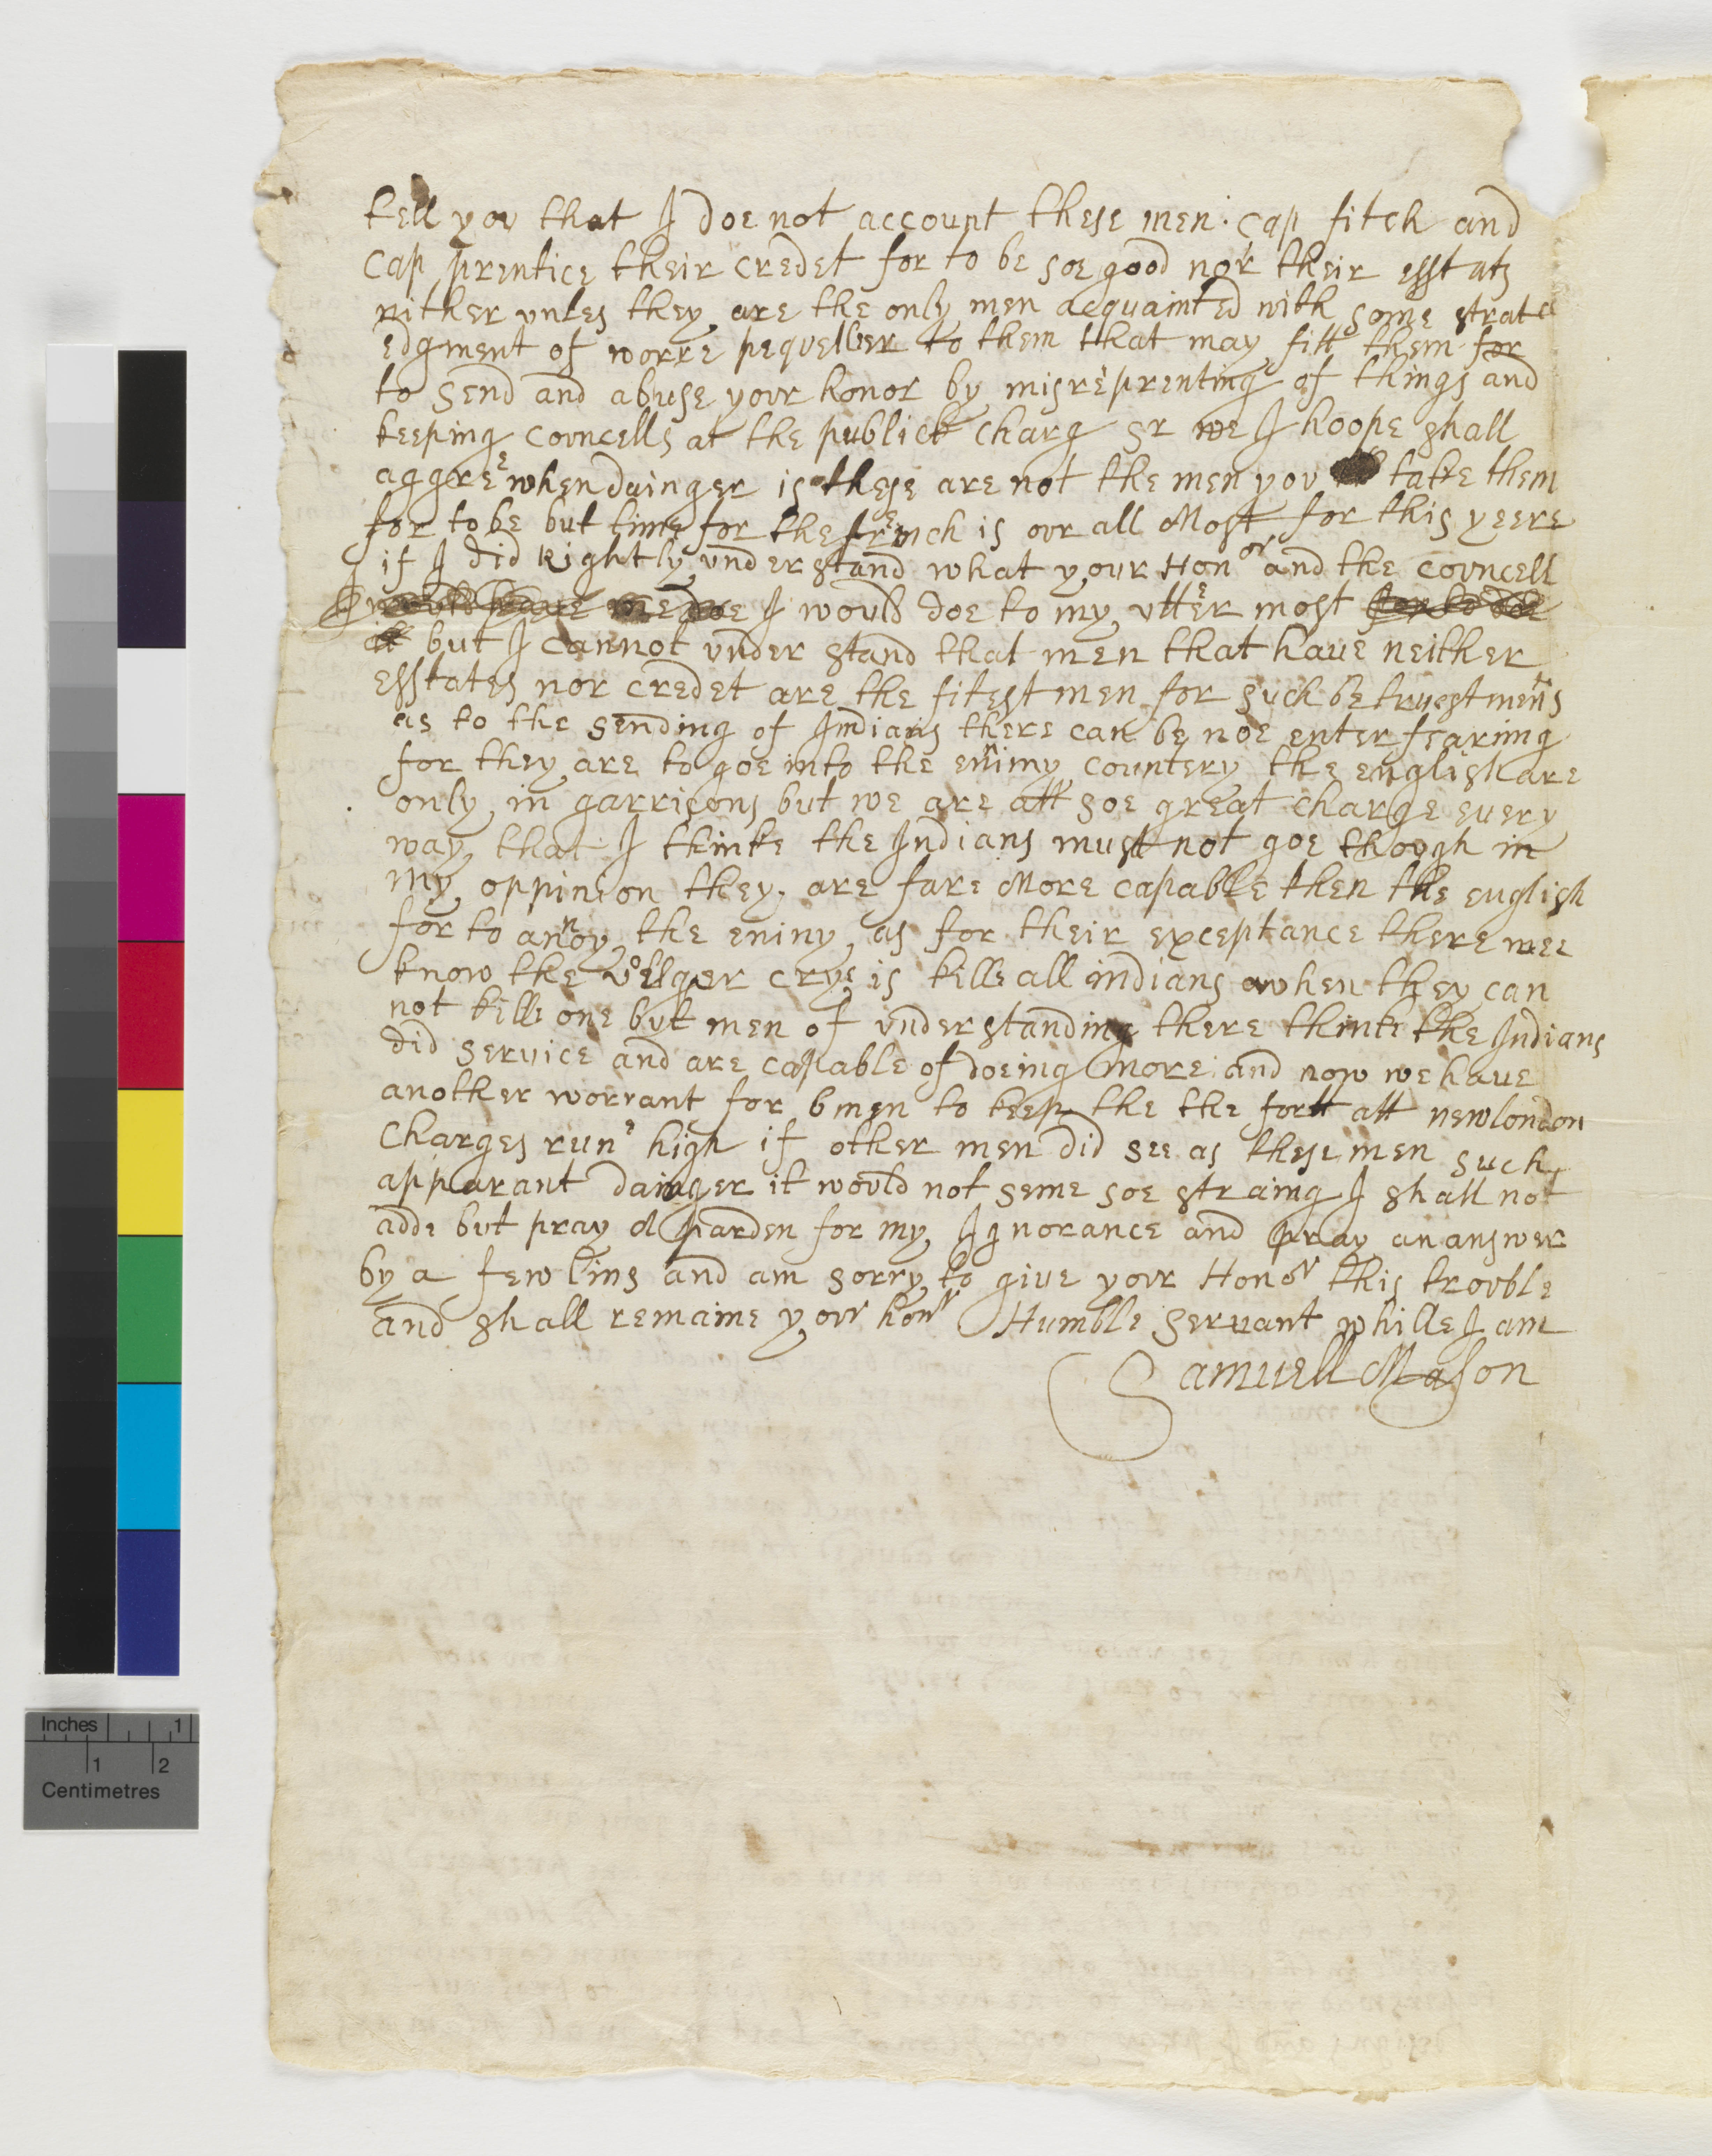 tell you that I doe not account these men · Cap fitch and
Cap prentice their credet for to be soe good nor their esstats
nither unles they are the only men acquainted with some strate
edgment of worre pequeller to them that may fitt them for
to send and abuse your honor by misreprenting of things and
keeping councells at the publick charg Sr we I hoope shall
aggree when dainger is these are not the men you take them
for to be but time for the french is our all Most for this yeere
if I did Rightly understand what your Honor and the councell
I would have me doe I would doe to my utter most
it but I cannot under stand that men that have neither
esstates nor credet are the fitest men for such betrustments
as to the sending of Indians there can be noe enter fearing
for they are to goe into the enimy countery the english are
only in garrisons but we are att soe great charge every
way that I thinke the Indians must not goe though in
my oppinion they are fare More capable then the english
for to annoy the eniny as for their exceptance there wee
know the volger crys is kille all indians when they can
not kille one but men of understanding there thinke the Indians
did service and are capable of doeing more and now we have
another worrant for 6 men to keep the the fortt att newlondon
Charges run high if other men did see as these men such
apparant dainger it would not seme soe straing I shall not
adde but pray a parden for my Ignorance and pray an answer
by a few lins and am sorry to give your Honor this trouble
and shall remaine your honr Humble Servant whille I am
Samuell Mason
Inches 1
1 2
Centimetres